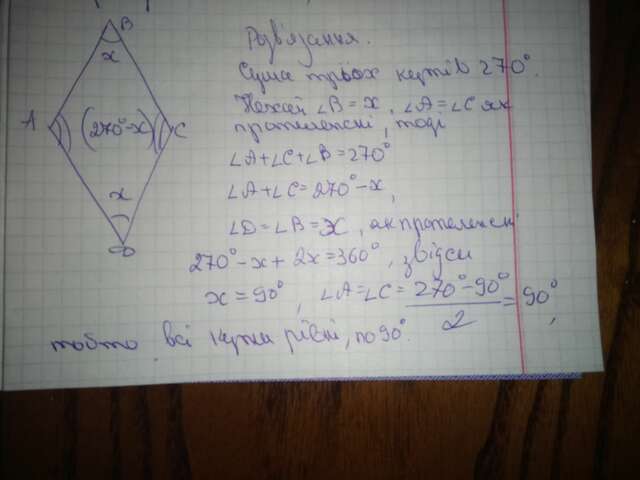 B
x
A
(270°-x)
C
x
D
Розв'язання.
Сума трьох кутів 270°.
Нехай ∠B=x, ∠A=∠C як
протилежні, тоді
∠A+∠C+∠B=270°
∠A+∠C=270°-x,
∠D=∠B=x, як протилежні
270°-x+2x=360°, звідси
x=90°, ∠A=∠C=(270°-90°)/2=90°,
тобто всі кути рівні, по 90°.